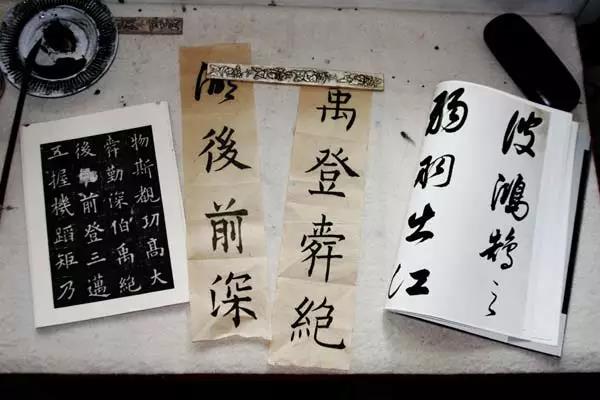 物斯覩功高大
舜勤深伯禹絕
後前登三邁
五握機蹈矩乃
禹登舜絕
後前深
波鴻鵠之
羽出江